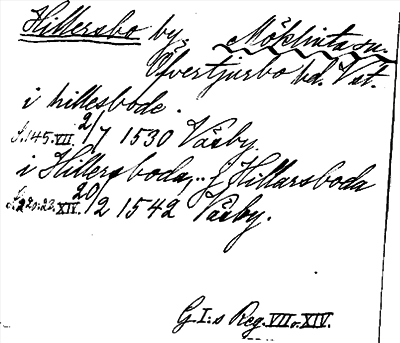 Hillersbo by, Möklinta sn.
Öfvertjurbo hd. Vst.
i hillesbode.
S. 145. VII. 2/7 1530 Väsby.
i Hillersboda, .. f Hillarsboda
S. 220. 22. XIV. 20/2 1542 Väsby.
G I:s Reg. VII o. XIV.